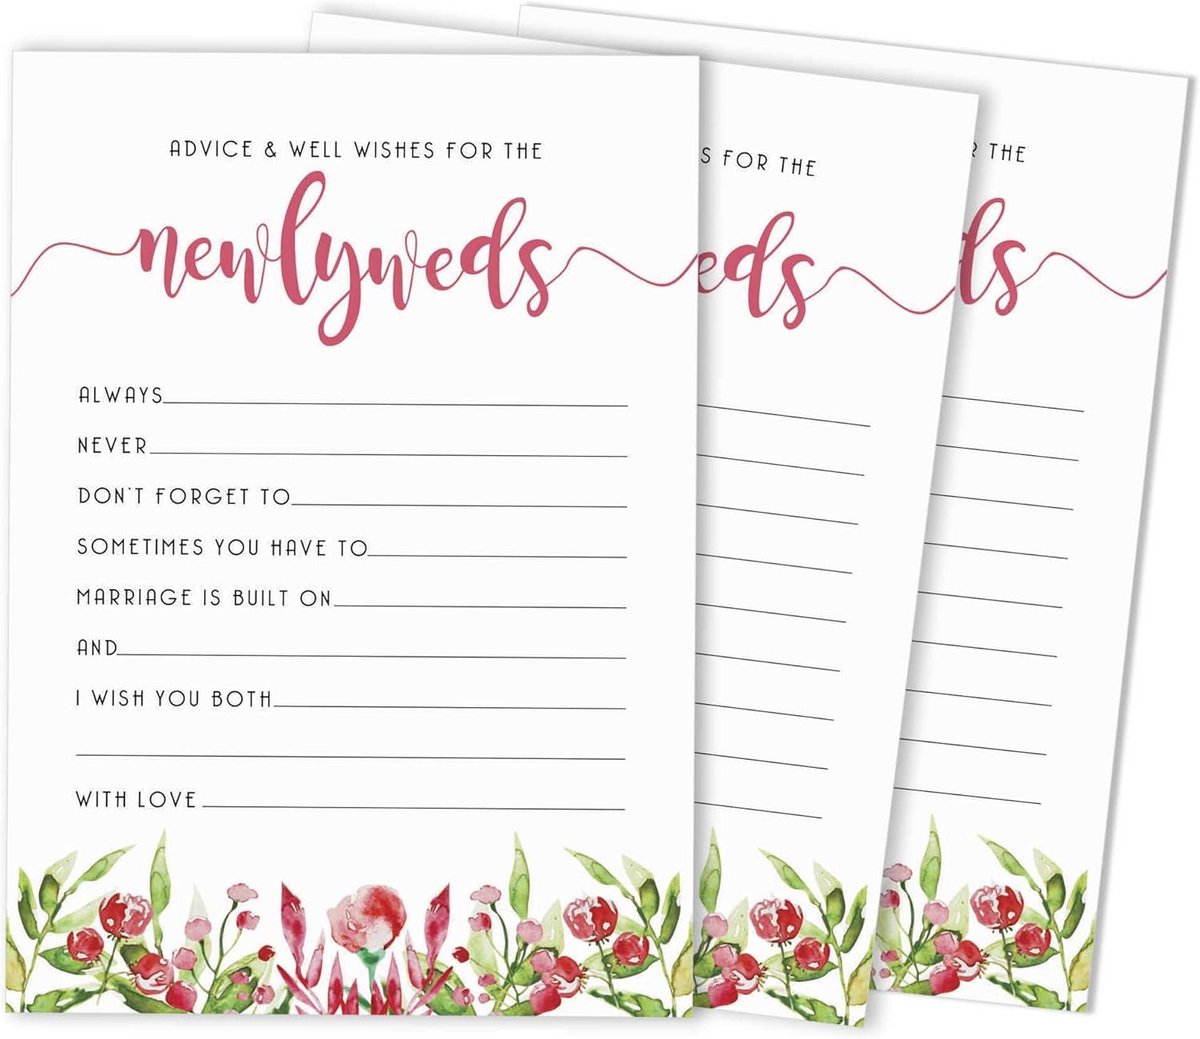 ADVICE & WELL WISHES FOR THE
newlyweds
ALWAYS
NEVER
DON'T FORGET TO
SOMETIMES YOU HAVE TO
MARRIAGE IS BUILT ON
AND
I WISH YOU BOTH
WITH LOVE
S FOR THE
eds
R THE
ds